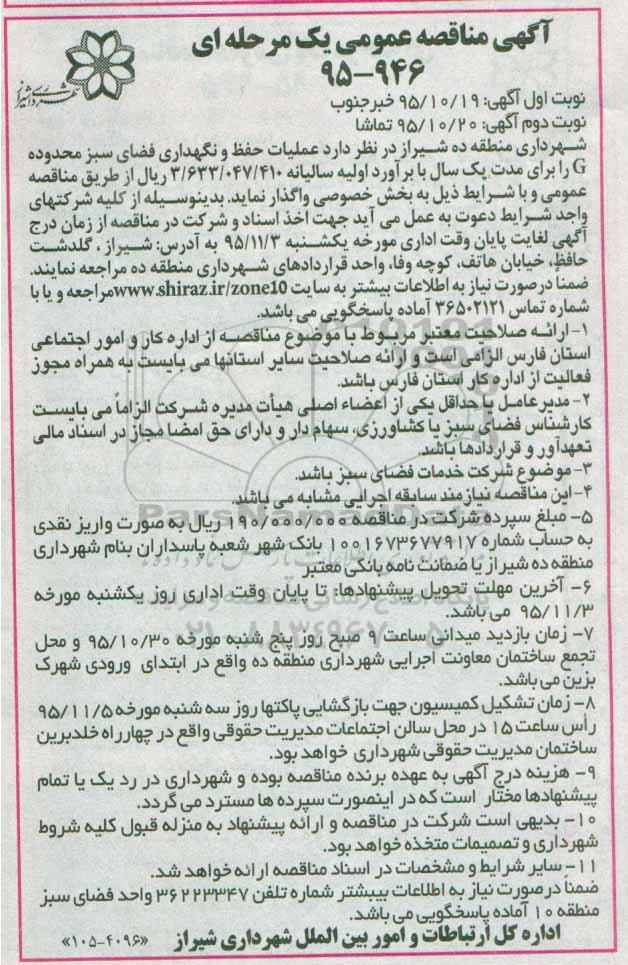 آگهی مناقصه عمومی یک مرحله ای
۹۵-۹۴۶
شهرداری شیراز
نوبت اول آگهی: ۹۵/۱۰/۱۹ خبرجنوب
نوبت دوم آگهی: ۹۵/۱۰/۲۰ تماشا
شهرداری منطقه ده شیراز در نظر دارد عملیات حفظ و نگهداری فضای سبز محدوده
G را برای مدت یک سال با برآورد اولیه سالیانه ۳/۶۳۳/۰۴۷/۴۱۰ ریال از طریق مناقصه
عمومی و با شرایط ذیل به بخش خصوصی واگذار نماید. بدینوسیله از کلیه شرکتهای
واجد شرایط دعوت به عمل می آید جهت اخذ اسناد و شرکت در مناقصه از زمان درج
آگهی لغایت پایان وقت اداری مورخه یکشنبه ۹۵/۱۱/۳ به آدرس: شیراز، گلدشت
حافظ، خیابان هاتف، کوچه وفا، واحد قراردادهای شهرداری منطقه ده مراجعه نمایند.
ضمنا درصورت نیاز به اطلاعات بیشتر به سایت www.shiraz.ir/zone10 مراجعه و یا با
شماره تماس ۳۶۵۰۲۱۲۱ آماده پاسخگویی می باشد.
۱- ارائه صلاحیت معتبر مربوط با موضوع مناقصه از اداره کار و امور اجتماعی
استان فارس الزامی است و ارائه صلاحیت سایر استانها می بایست به همراه مجوز
فعالیت از اداره کار استان فارس باشد.
۲- مدیرعامل یا حداقل یکی از اعضاء اصلی هیأت مدیره شرکت الزاماً می بایست
کارشناس فضای سبز یا کشاورزی، سهام دار و دارای حق امضا مجاز در اسناد مالی
تعهدآور و قراردادها باشد.
۳- موضوع شرکت خدمات فضای سبز باشد.
۴- این مناقصه نیازمند سابقه اجرایی مشابه می باشد.
۵- مبلغ سپرده شرکت در مناقصه ۱۹۰/۰۰۰/۰۰۰ ریال به صورت واریز نقدی
به حساب شماره ۱۰۰۱۶۷۳۶۷۷۹۱۷ بانک شهر شعبه پاسداران بنام شهرداری
منطقه ده شیراز یا ضمانت نامه بانکی معتبر
۶- آخرین مهلت تحویل پیشنهادها: تا پایان وقت اداری روز یکشنبه مورخه
۹۵/۱۱/۳ می باشد.
۷- زمان بازدید میدانی ساعت ۹ صبح روز پنج شنبه مورخه ۹۵/۱۰/۳۰ و محل
تجمع ساختمان معاونت اجرایی شهرداری منطقه ده واقع در ابتدای ورودی شهرک
بزین می باشد.
۸- زمان تشکیل کمیسیون جهت بازگشایی پاکتها روز سه شنبه مورخه ۹۵/۱۱/۵
رأس ساعت ۱۵ در محل سالن اجتماعات مدیریت حقوقی واقع در چهارراه خلدبرین
ساختمان مدیریت حقوقی شهرداری خواهد بود.
۹- هزینه درج آگهی به عهده برنده مناقصه بوده و شهرداری در رد یک یا تمام
پیشنهادها مختار است که در اینصورت سپرده ها مسترد می گردد.
۱۰- بدیهی است شرکت در مناقصه و ارائه پیشنهاد به منزله قبول کلیه شروط
شهرداری و تصمیمات متخذه خواهد بود.
۱۱- سایر شرایط و مشخصات در اسناد مناقصه ارائه خواهد شد.
ضمناً درصورت نیاز به اطلاعات بیبشتر شماره تلفن ۳۶۲۲۳۳۴۷ واحد فضای سبز
منطقه ۱۰ آماده پاسخگویی می باشد.
اداره کل ارتباطات و امور بین الملل شهرداری شیراز
«۱۰۵-۴۰۹۶»
ParsNamadData
۰۲۱-۸۸۳۴۹۶۷۰-۵